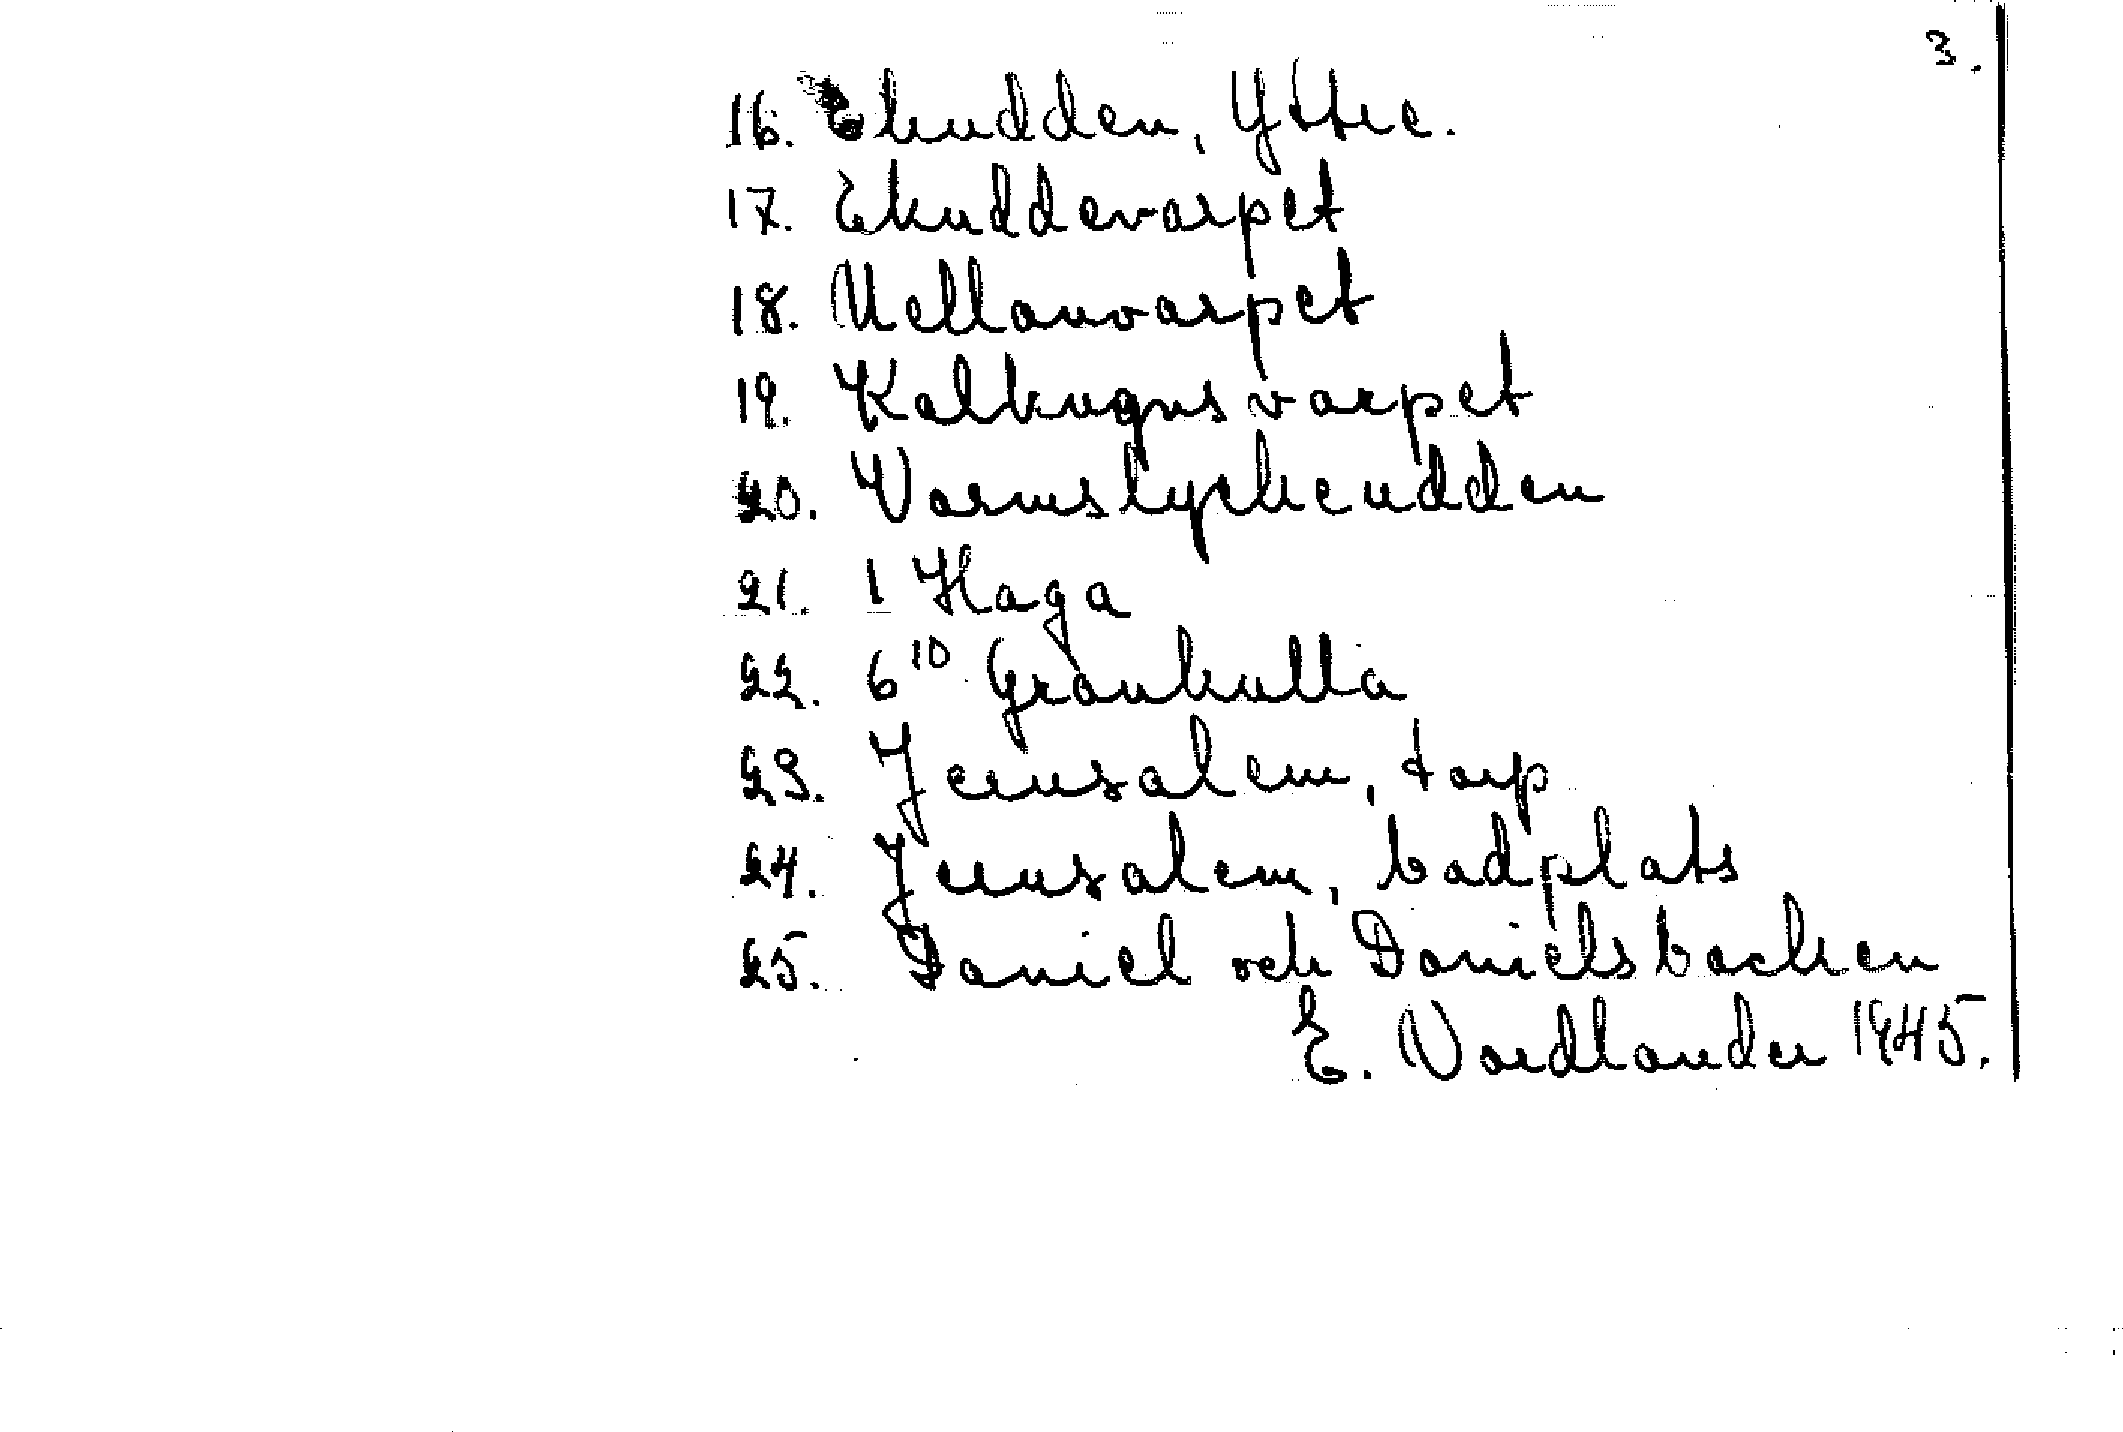 3.
16. Ekudden, Yttre.
17. Ekuddevarpet
18. Mellanvarpet
19. Kalkugnsvarpet
20. Varmslyckeudden
21. 1 Haga
22. 6¹⁰ Grankulla
23. Jerusalem, torp
24. Jerusalem, badplats
25. Daniel och Danielsbacken
E. Nordlander 1945.